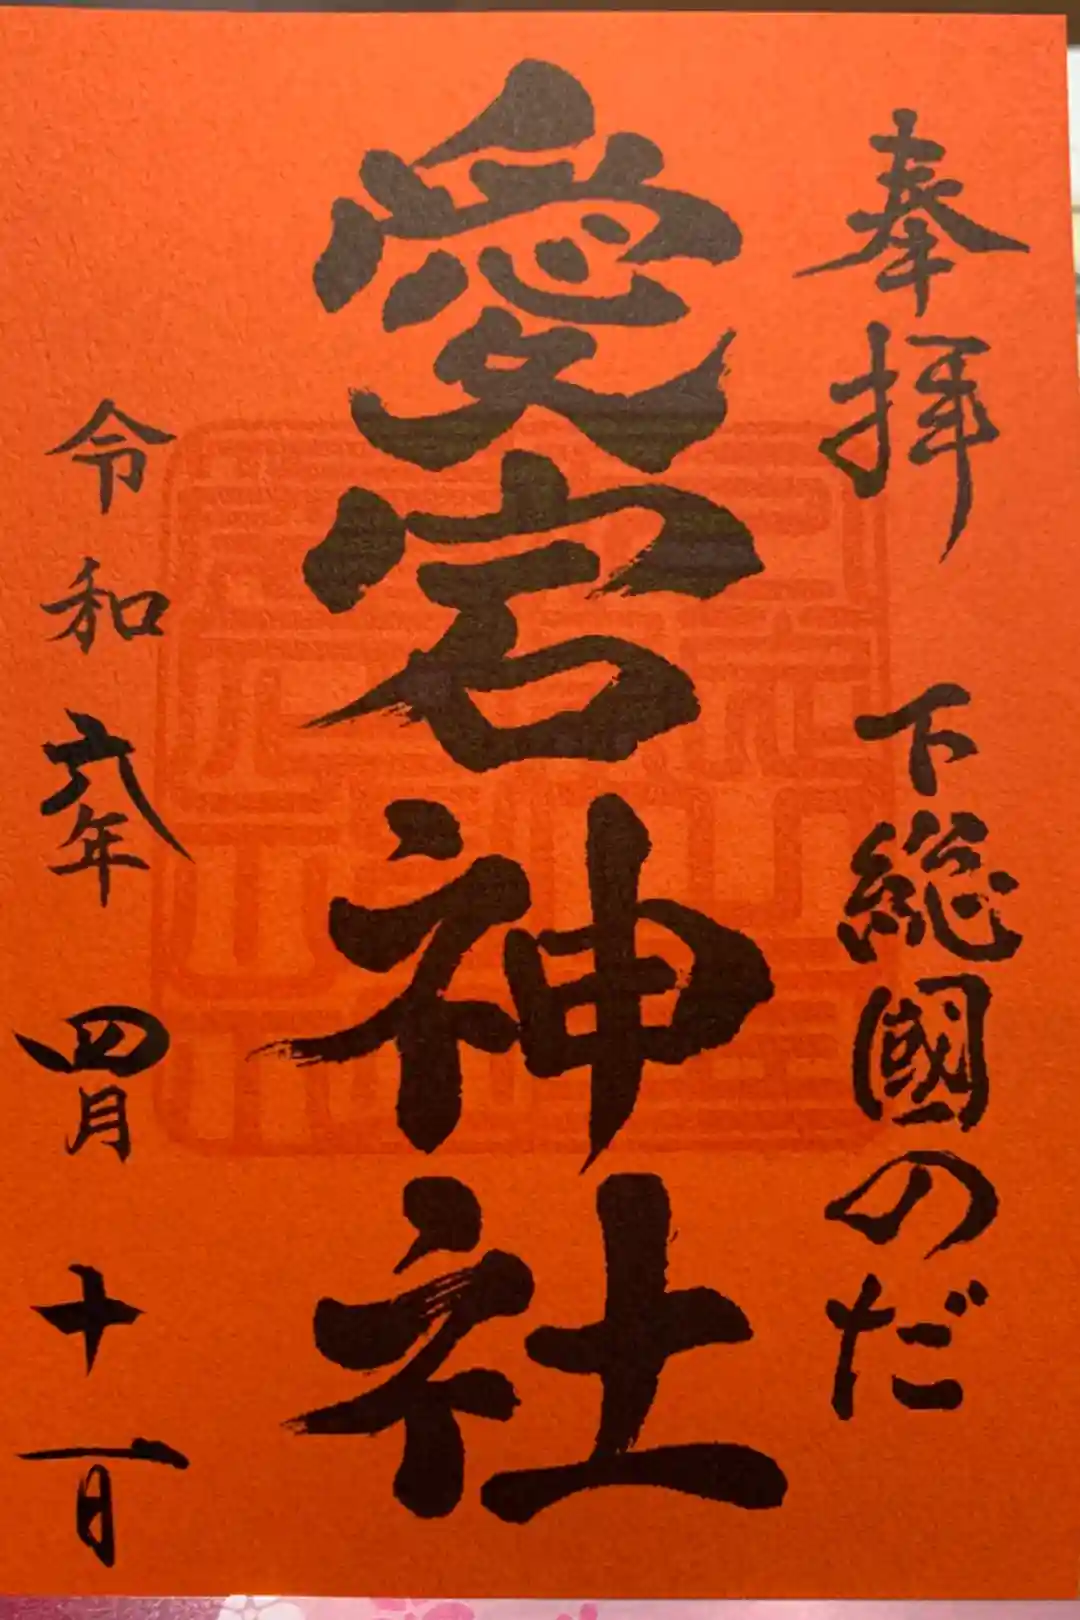 奉拝
下総國のだ
愛宕神社
令和六年四月十一日